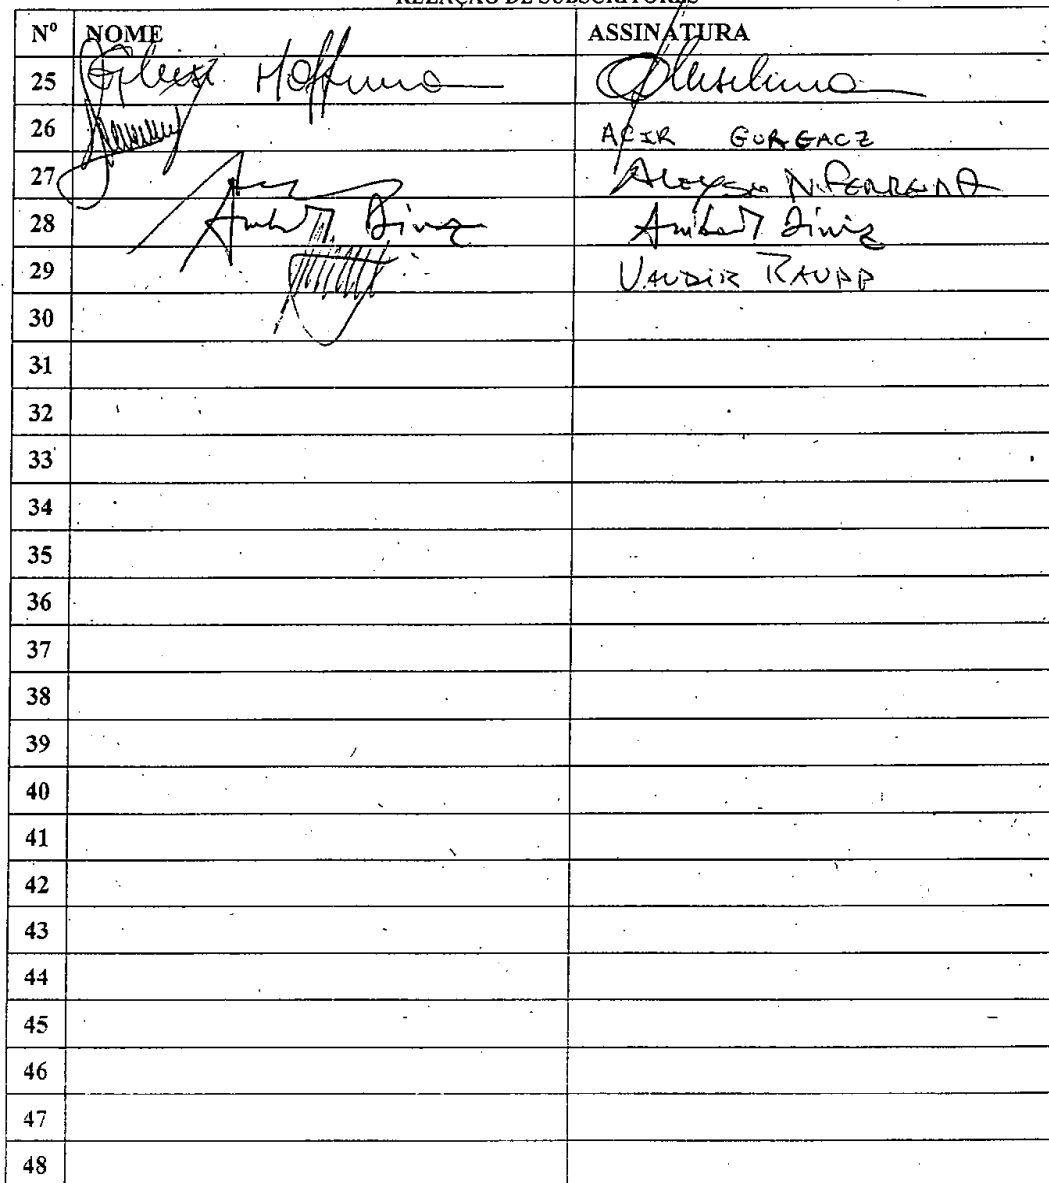 RELAÇÃO DE SUBSCRITORES
Nº NOME ASSINATURA
25 Gleisi Hoffmann
26 ACIR GURGACZ
27 ALOYSIO N. FERREIRA
28 Anibal Diniz Anibal Diniz
29 VALDIR RAUPP
30
31
32
33
34
35
36
37
38
39
40
41
42
43
44
45
46
47
48